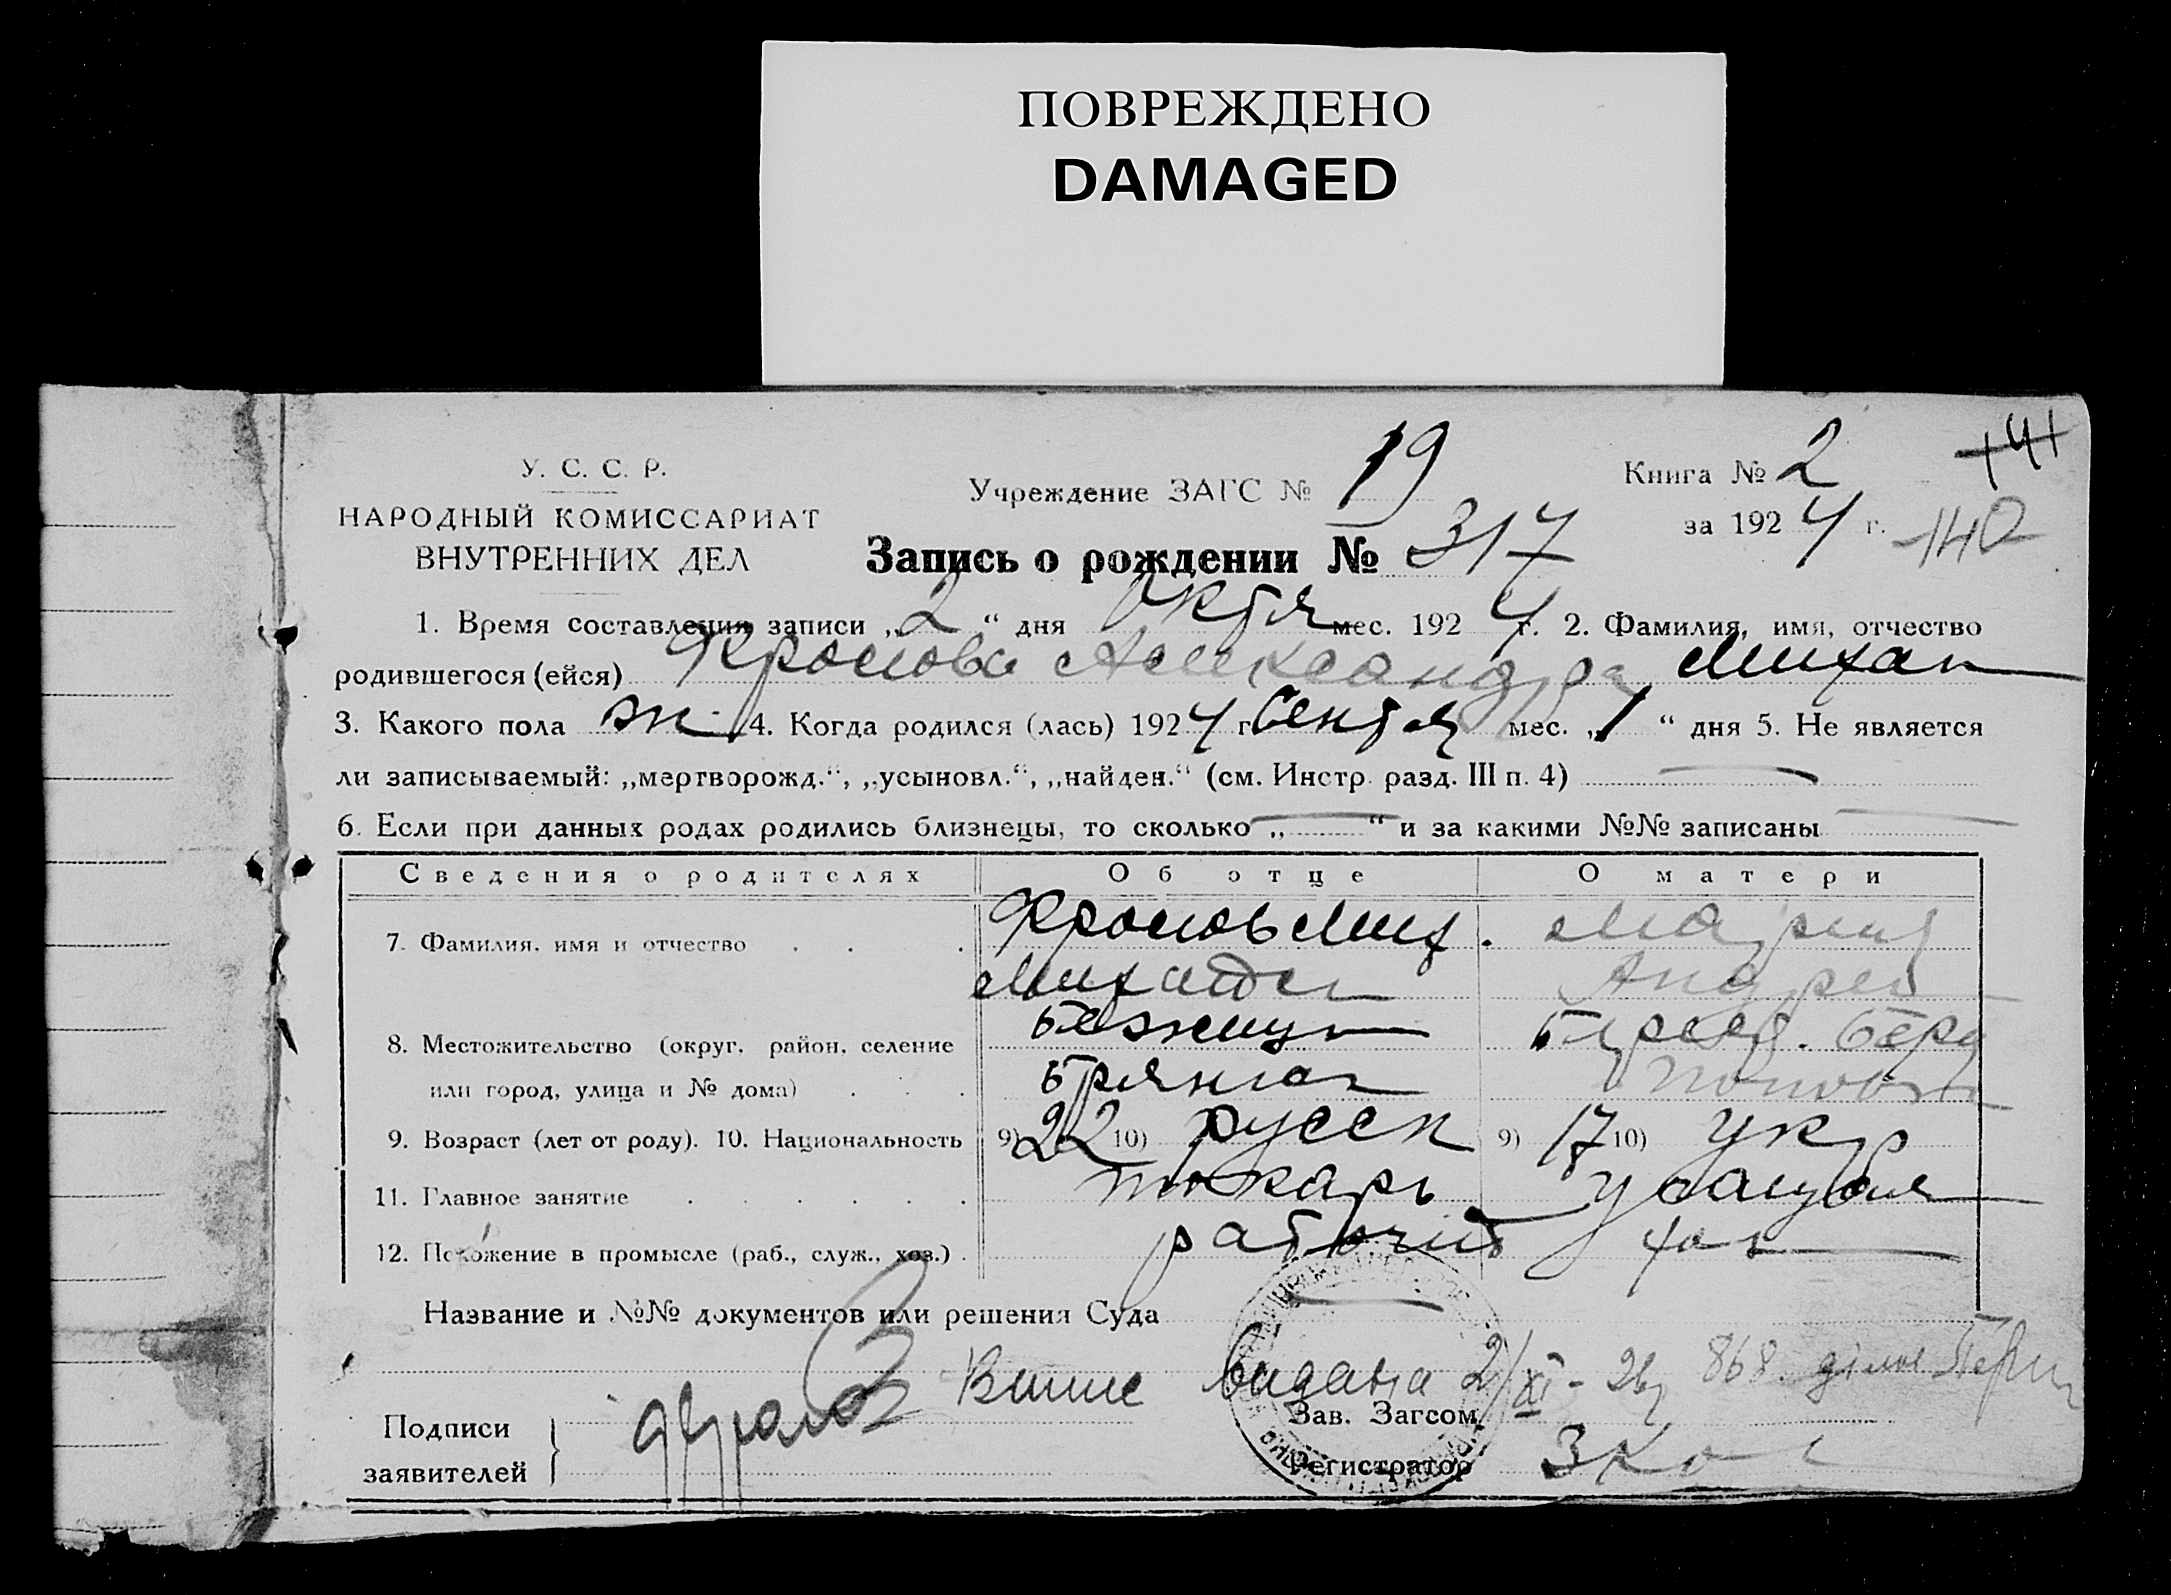 ПОВРЕЖДЕНО
DAMAGED
У. С. С. Р.
НАРОДНЫЙ КОМИССАРИАТ
ВНУТРЕННИХ ДЕЛ
Учреждение ЗАГС № 19
Книга № 2
за 1924 г.
140
Запись о рождении № 317
1. Время составления записи „2“ дня Октя мес. 1924 г. 2. Фамилия, имя, отчество
родившегося (ейся) Фролова Александра Михай
3. Какого пола ж. 4. Когда родился (лась) 1924 г. Сентя мес. „1“ дня 5. Не является
ли записываемый: „мертворожд.“, „усыновл.“, „найден.“ (см. Инстр. разд. III п. 4)
6. Если при данных родах родились близнецы, то сколько „ “ и за какими №№ записаны
Сведения о родителях Об отце О матери
7. Фамилия, имя и отчество Фролов Мих. Мария
Андрей
8. Местожительство (округ, район, селение
или город, улица и № дома)
9. Возраст (лет от роду). 10. Национальность 9) 22 10) русск 9) 17 10) укр
11. Главное занятие токарь
12. Положение в промысле (раб., служ., хоз.) рабочий хоз
Название и №№ документов или решения Суда
видана 2/XI - 868
Подписи
заявителей
Фролов
Зав. Загсом
Регистратор